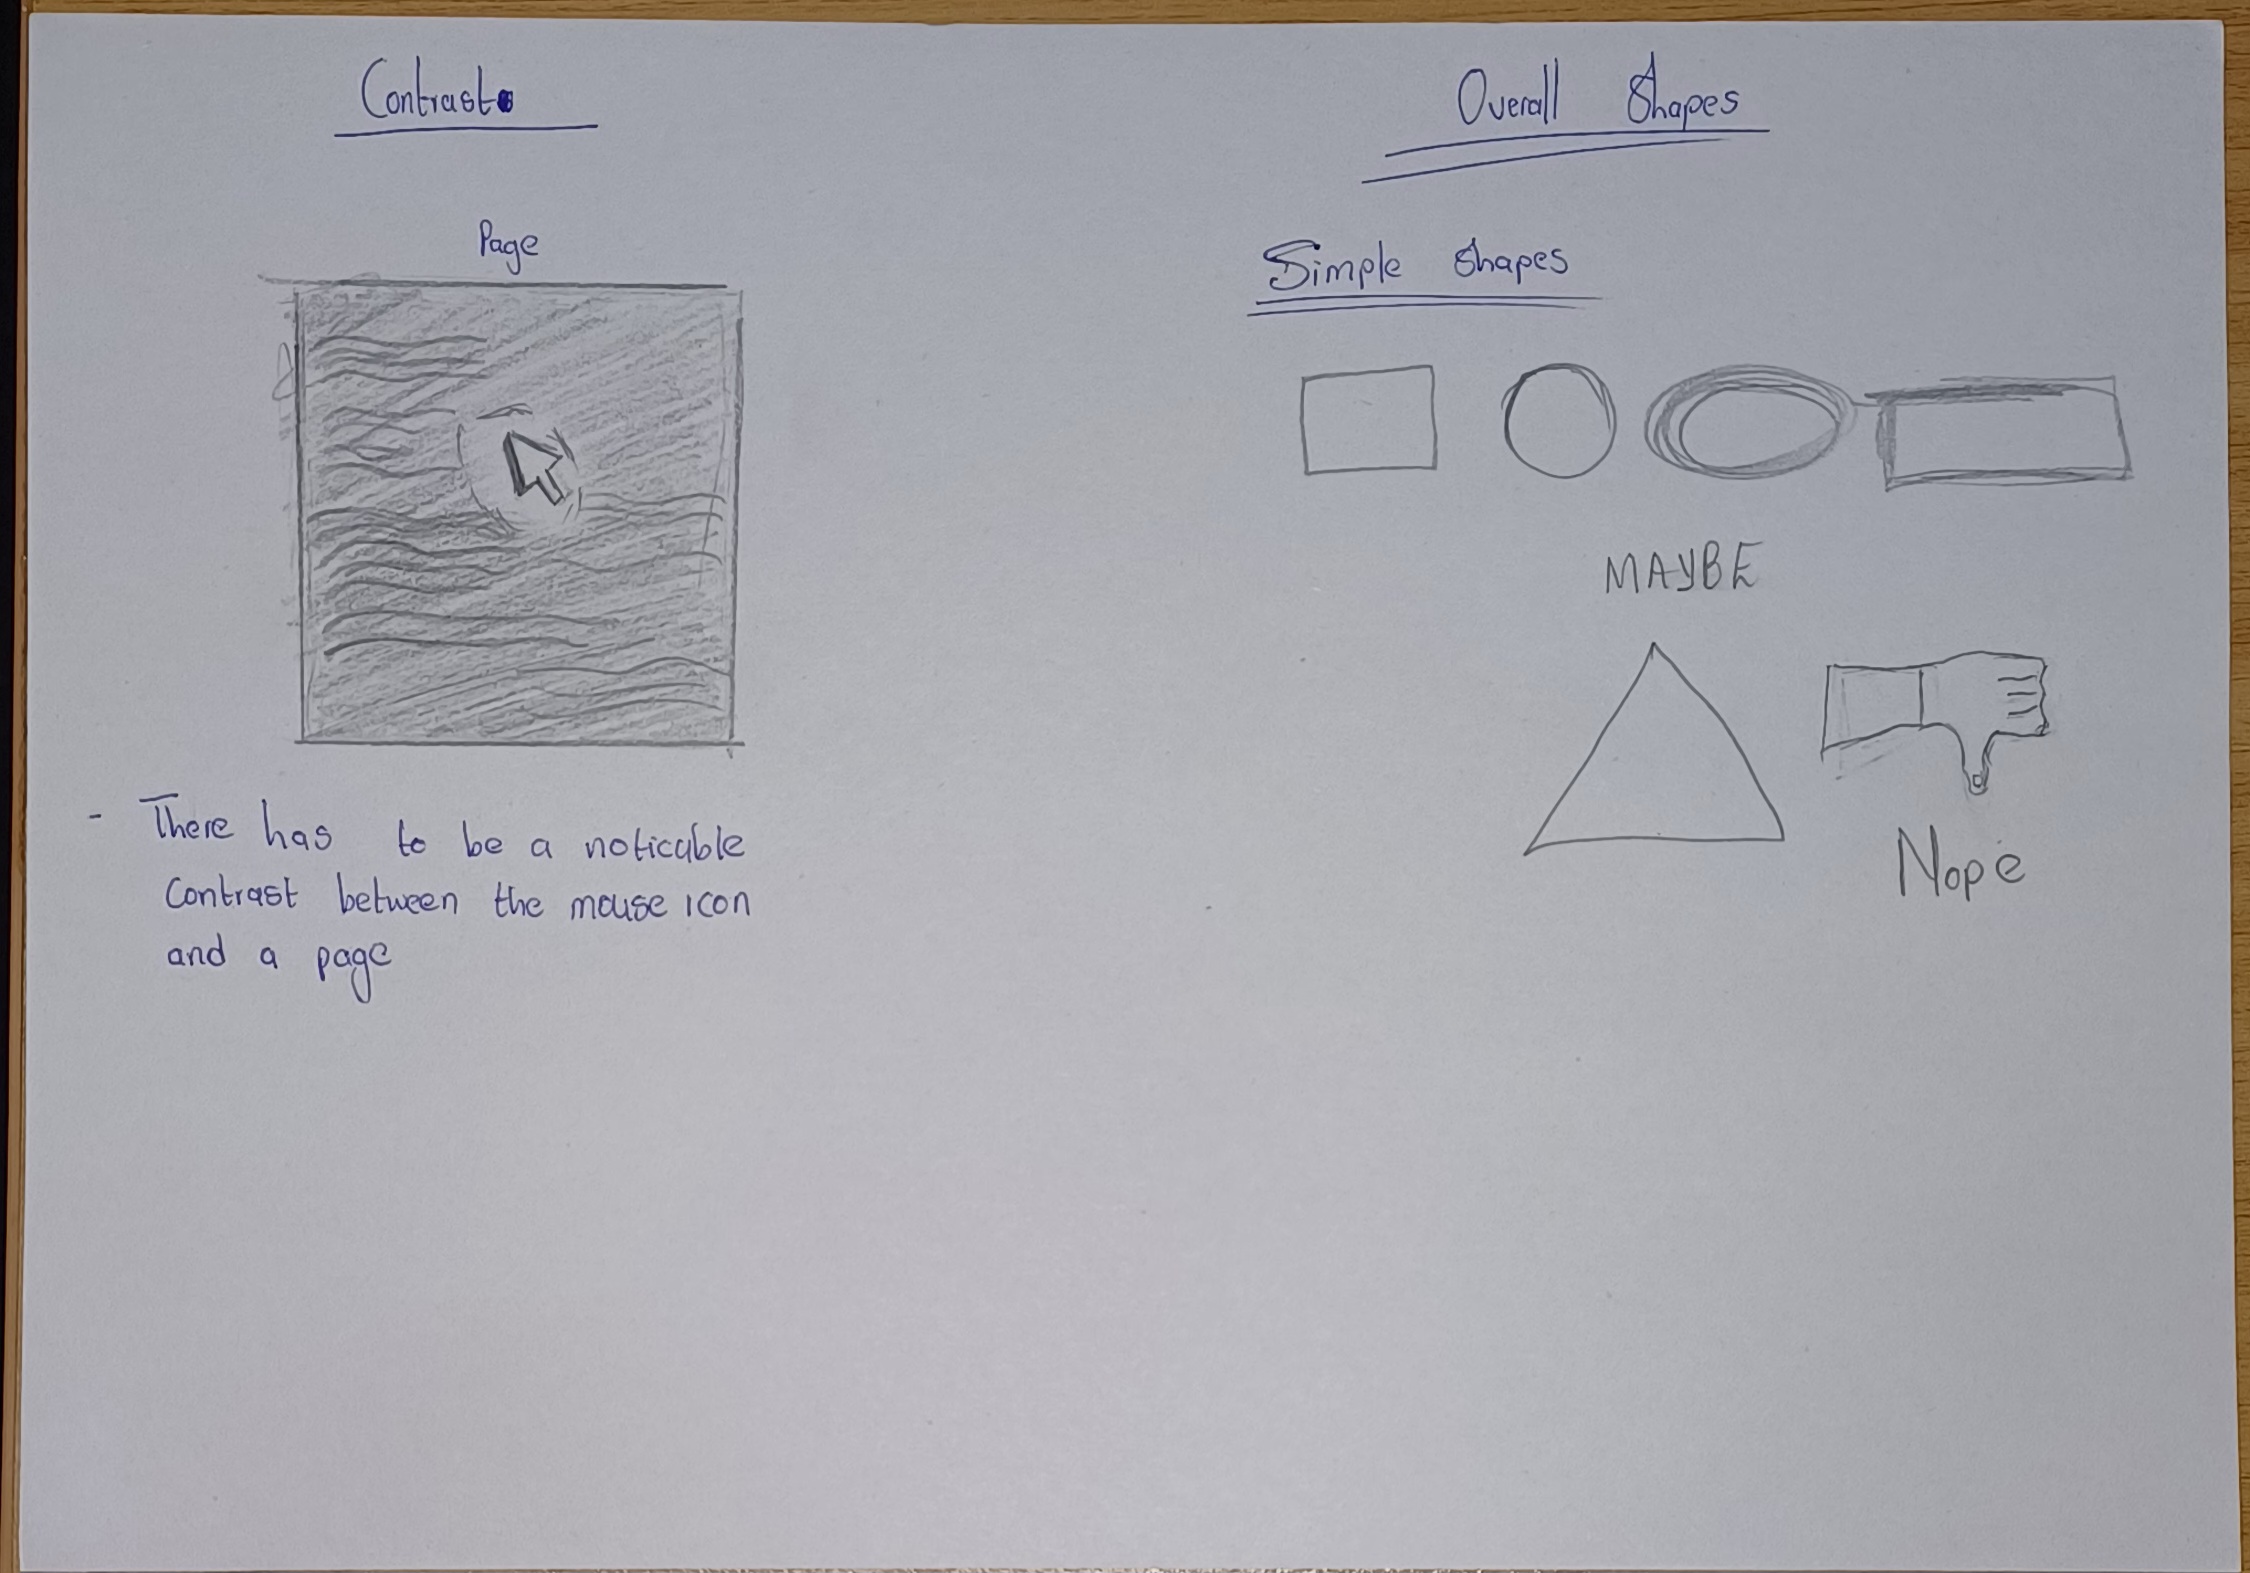 Contrast
Page
- There has to be a noticable
contrast between the mouse icon
and a page
Overall Shapes
Simple shapes
MAYBE
Nope